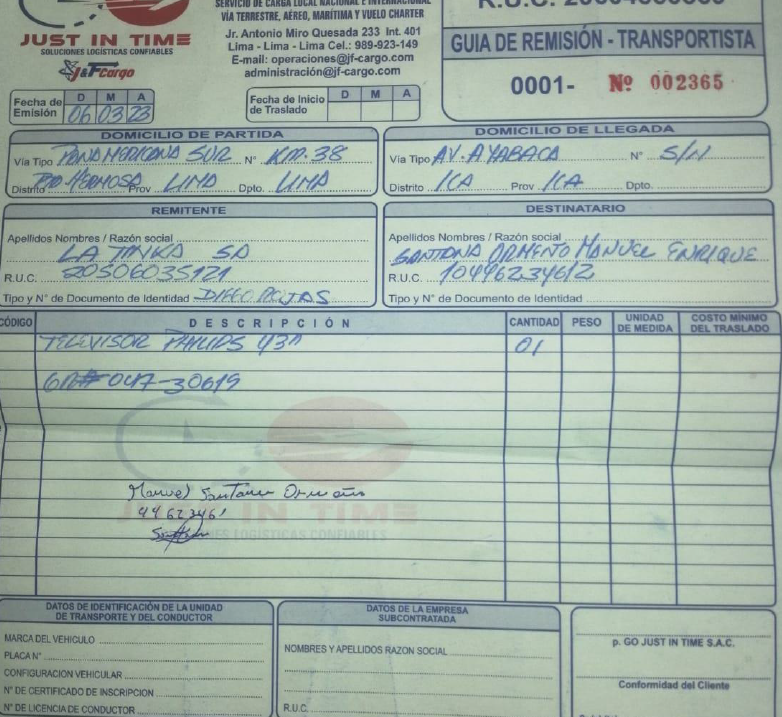 SERVICIO DE CARGA LOCAL NACIONAL E INTERNACIONAL
VÍA TERRESTRE, AÉREO, MARÍTIMA Y VUELO CHARTER
JUST IN TIME
SOLUCIONES LOGÍSTICAS CONFIABLES
J&F Cargo
Jr. Antonio Miro Quesada 233 Int. 401
Lima - Lima - Lima Cel.: 989-923-149
E-mail: operaciones@jf-cargo.com
administración@jf-cargo.com
R.U.C.
GUIA DE REMISIÓN - TRANSPORTISTA
0001- Nº 002365
Fecha de Emisión D M A 06 03 23
Fecha de Inicio de Traslado D M A
DOMICILIO DE PARTIDA
Vía Tipo PANAMERICANA SUR Nº KM. 38
Distrito Pto HERMOSA Prov LIMA Dpto. LIMA
DOMICILIO DE LLEGADA
Via Tipo AV. AYABACA Nº S/N
Distrito ICA Prov ICA Dpto.
REMITENTE
Apellidos Nombres / Razón social
LA TINKA SA
R.U.C. 20506035121
Tipo y Nº de Documento de Identidad DIEGO ROJAS
DESTINATARIO
Apellidos Nombres / Razón social
SANTANA ORMEÑO MANUEL ENRIQUE
R.U.C. 10446234612
Tipo y Nº de Documento de Identidad
CÓDIGO DESCRIPCIÓN CANTIDAD PESO UNIDAD DE MEDIDA COSTO MÍNIMO DEL TRASLADO
TELEVISOR PHILIPS 43" 01
GR# 047-30619
Manuel Santana Ormeño
44623461
JUST IN TIME
SOLUCIONES LOGISTICAS CONFIABLES
DATOS DE IDENTIFICACIÓN DE LA UNIDAD
DE TRANSPORTE Y DEL CONDUCTOR
MARCA DEL VEHICULO
PLACA Nº
CONFIGURACION VEHICULAR
Nº DE CERTIFICADO DE INSCRIPCION
Nº DE LICENCIA DE CONDUCTOR
DATOS DE LA EMPRESA
SUBCONTRATADA
NOMBRES Y APELLIDOS RAZON SOCIAL
R.U.C.
p. GO JUST IN TIME S.A.C.
Conformidad del Cliente